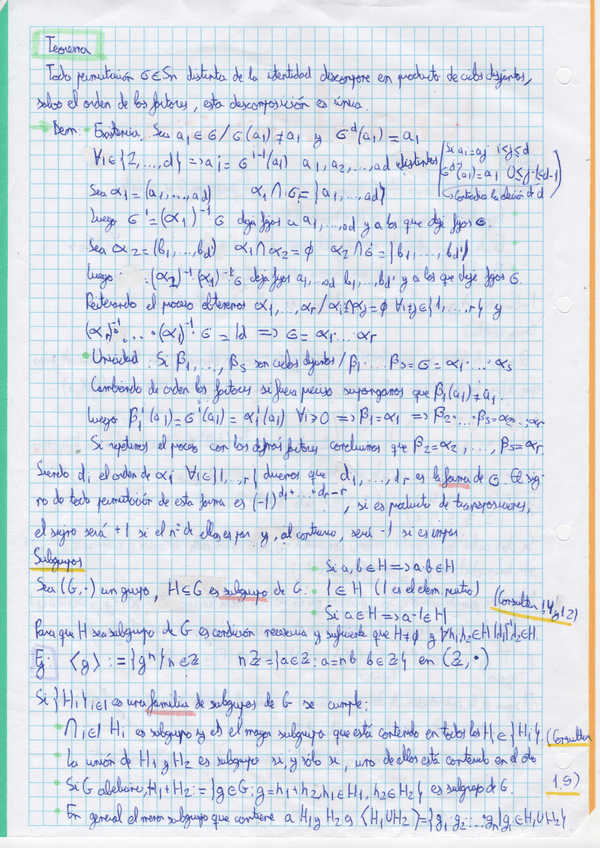 Teorema
Toda permutación σ∈Sn distinta de la identidad descompone en producto de ciclos disjuntos,
salvo el orden de los factores, esta descomposición es única.
Dem: Existencia. Sea a1∈σ / σ(a1)≠a1 y σ^d(a1)=a1
∀i∈{2,...,d} => ai=σ^{i-1}(a1) a1, a2,...,ad distintos (Si ai=aj i≤j≤d
σ^{j-i}(a1)=a1 0≤j-i≤d-1
Contradice la elección de d)
Sea α1=(a1,...,ad) α1∩σ={a1,...,ad}
Luego σ'=(α1)^{-1}σ deja fijos a a1,...,ad y a los que deje fijos σ.
Sea α2=(b1,...,bd') α1∩α2=∅ α2∩σ={b1,...,bd'}
Luego :=(α2)^{-1}(α1)^{-1}σ deja fijos a1,...ad b1,...bd' y a los que deje fijos σ.
Reiterando el proceso obtenemos α1,...,αr / αi∩αj=∅ ∀i≠j∈{1,...,r} y
(αr)^{-1}·...·(α1)^{-1}·σ=Id => σ=α1·...·αr
Unicidad: Si β1,...,βs son ciclos disjuntos / β1·...·βs=σ=α1·...·αs
Cambiando de orden los factores si fuera preciso supongamos que β1(a1)≠a1.
Luego β1^i(a1)=σ^i(a1)=α1^i(a1) ∀i≥0 => β1=α1 => β2·...·βs=α2·...·αr
Si repetimos el proceso con los demás factores concluimos que β2=α2,...,βs=αr.
Siendo di el orden de αi ∀i∈{1,...,r} diremos que d1,...,dr es la forma de σ. El sig-
no de toda permutación de esta forma es (-1)^{d1+...+dr-r}, si es producto de transposiciones,
el signo será +1 si el nº de ellas es par y, al contrario, será -1 si es impar
Subgrupos
Si a,b∈H => a·b∈H
Sea (G,·) un grupo, H⊆G es subgrupo de G. 1∈H (1 es el elem neutro)
Si a∈H => a^-1∈H
(Consultar 1.4 y 1.2)
Para que H sea subgrupo de G es condición necesaria y suficiente que H≠∅ y ∀h1,h2∈H h1^{-1}h2∈H.
Ej: <g>:={g^n / n∈Z} nZ={a∈Z: a=nb b∈Z} en (Z,·)
Si {Hi}i∈I es una familia de subgrupos de G se cumple:
∩i∈I Hi es subgrupo y es el mayor subgrupo que está contenido en todos los H∈{Hi}. (Consultar
La unión de H1 y H2 es subgrupo si, y sólo si, uno de ellos está contenido en el otro
1.5)
Si G abeliano, H1+H2:={g∈G: g=h1+h2, h1∈H1, h2∈H2} es subgrupo de G.
En general el menor subgrupo que contiene a H1 y H2 es <H1∪H2>={g1·g2·...·gn / gi∈H1∪H2}.